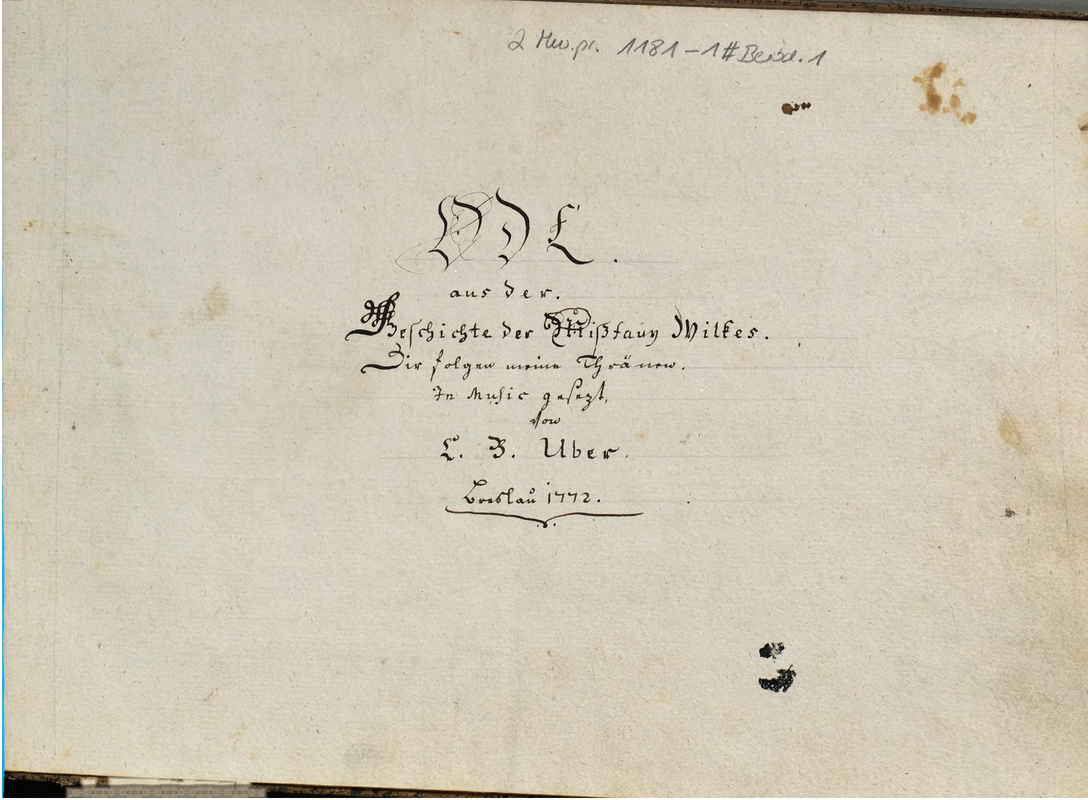 2 Mus.pr. 1181-1#Beibd.1
ODE.
aus der.
Geschichte der Mißfany Wilkes.
Dir folgen meine Thränen.
In Music gesezt,
von
C. B. Uber.
Breslau 1772.